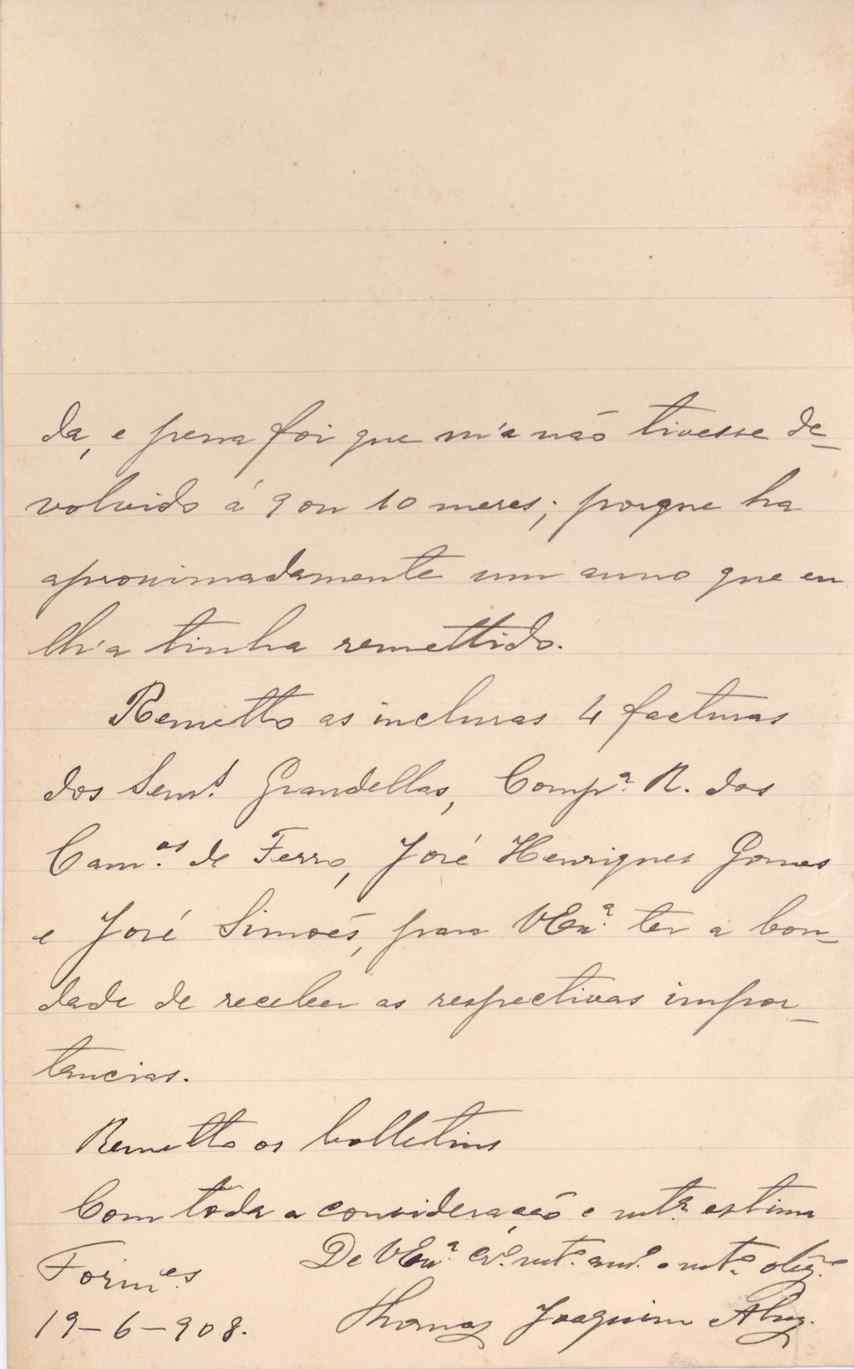 da, e pena foi que m'a não tivesse de-
volvido á 9 ou 10 meses; porque ha
aproximadamente um anno que eu
lh'a tinha remettido.
Remetto as inclusas 4 facturas
dos Senrs. Grandellas, Compª. R. dos
Camos. de Ferro, José Henriques Gomes
e José Simões, para VExª. ter a bon-
dade de receber as respectivas impor-
tancias.
Remetto os bolletins
Com toda a consideração e mtª. estima
De VExª. crº. mtº. amº. e mtº. obrgº.
Formes
19-6-908.
Thomaz Joaquim